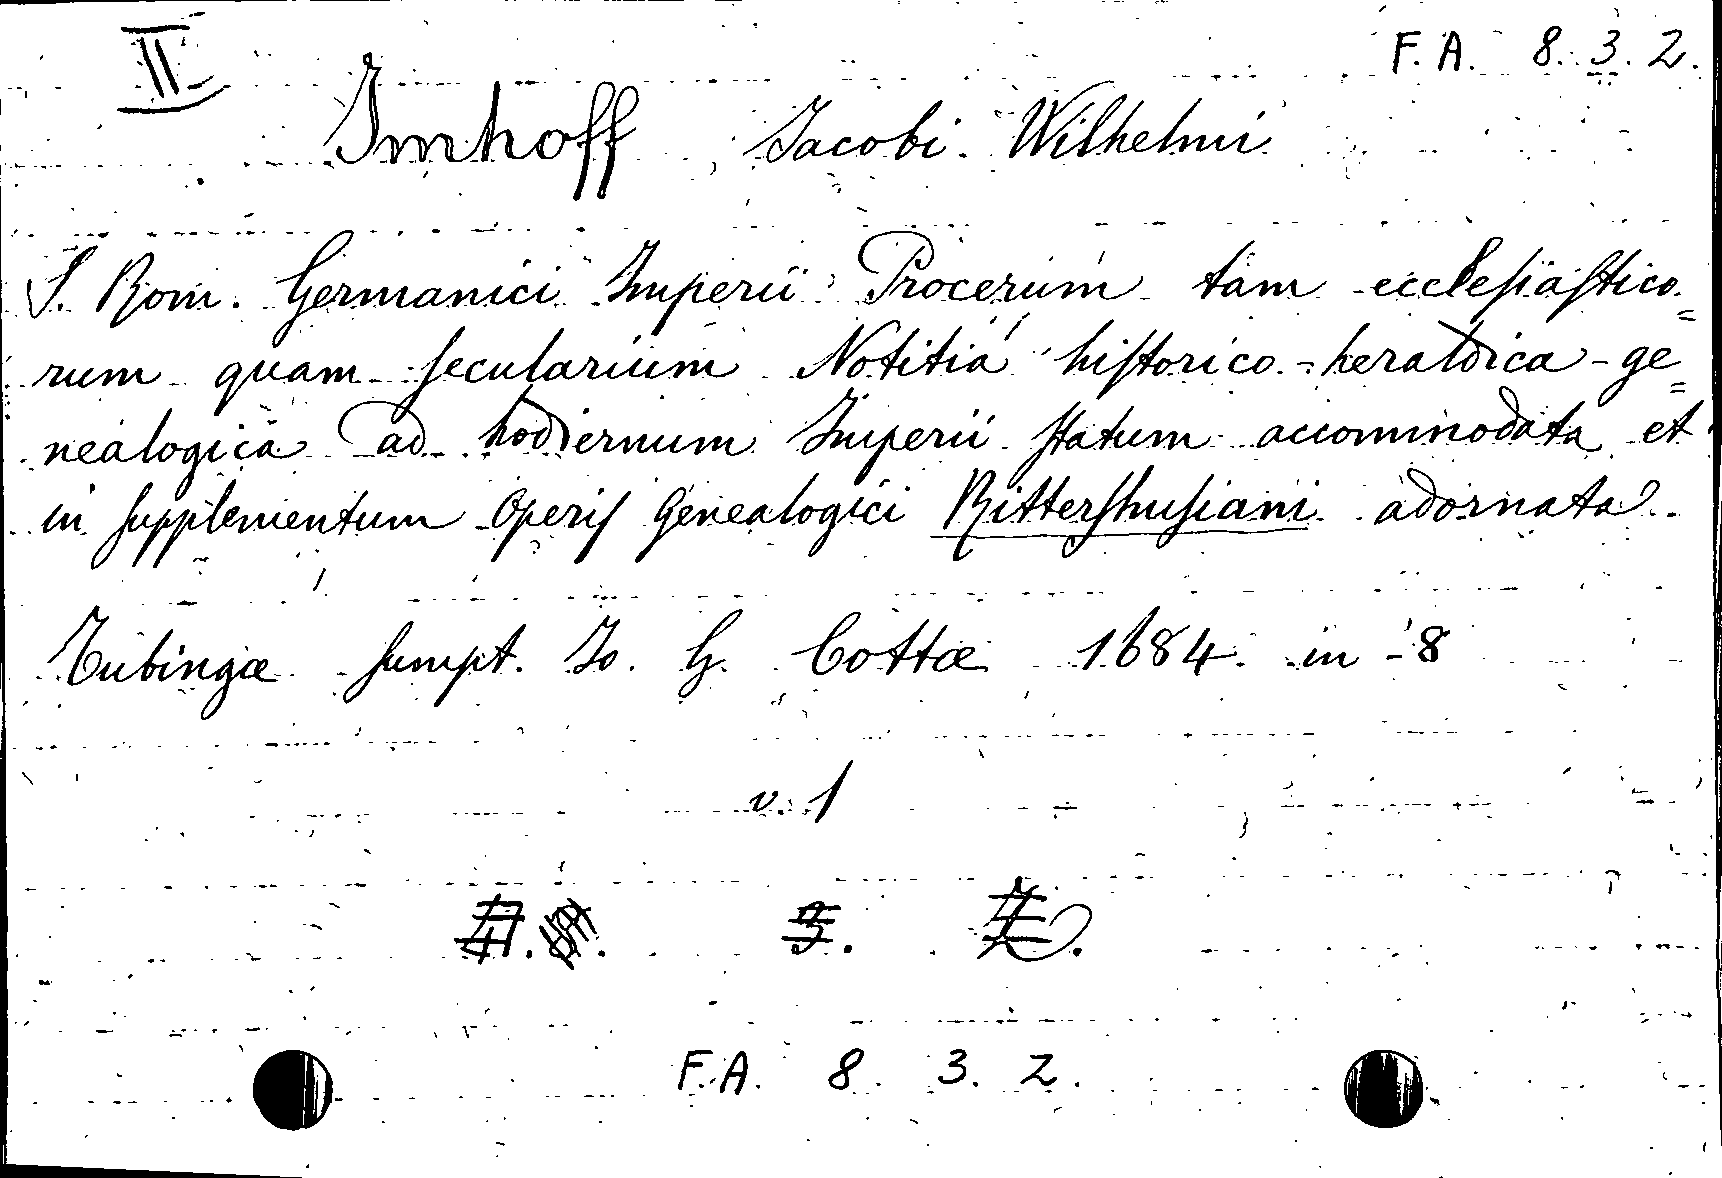 II
F. A. 8. 3. 2.
Imhoff, Jacobi Wilhelmi
S. Rom. Germanici Imperii Procerum tam ecclesiastico=
rum quam secularium Notitia historico-heraldica-ge=
nealogica ad hodiernum Imperii statum accommodata et
in supplementum Operis Genealogici Rittershusiani adornata.
Tubingæ sumpt. Jo. G. Cottæ 1684. in -8
v. 1
F. A. 8. 3. 2.